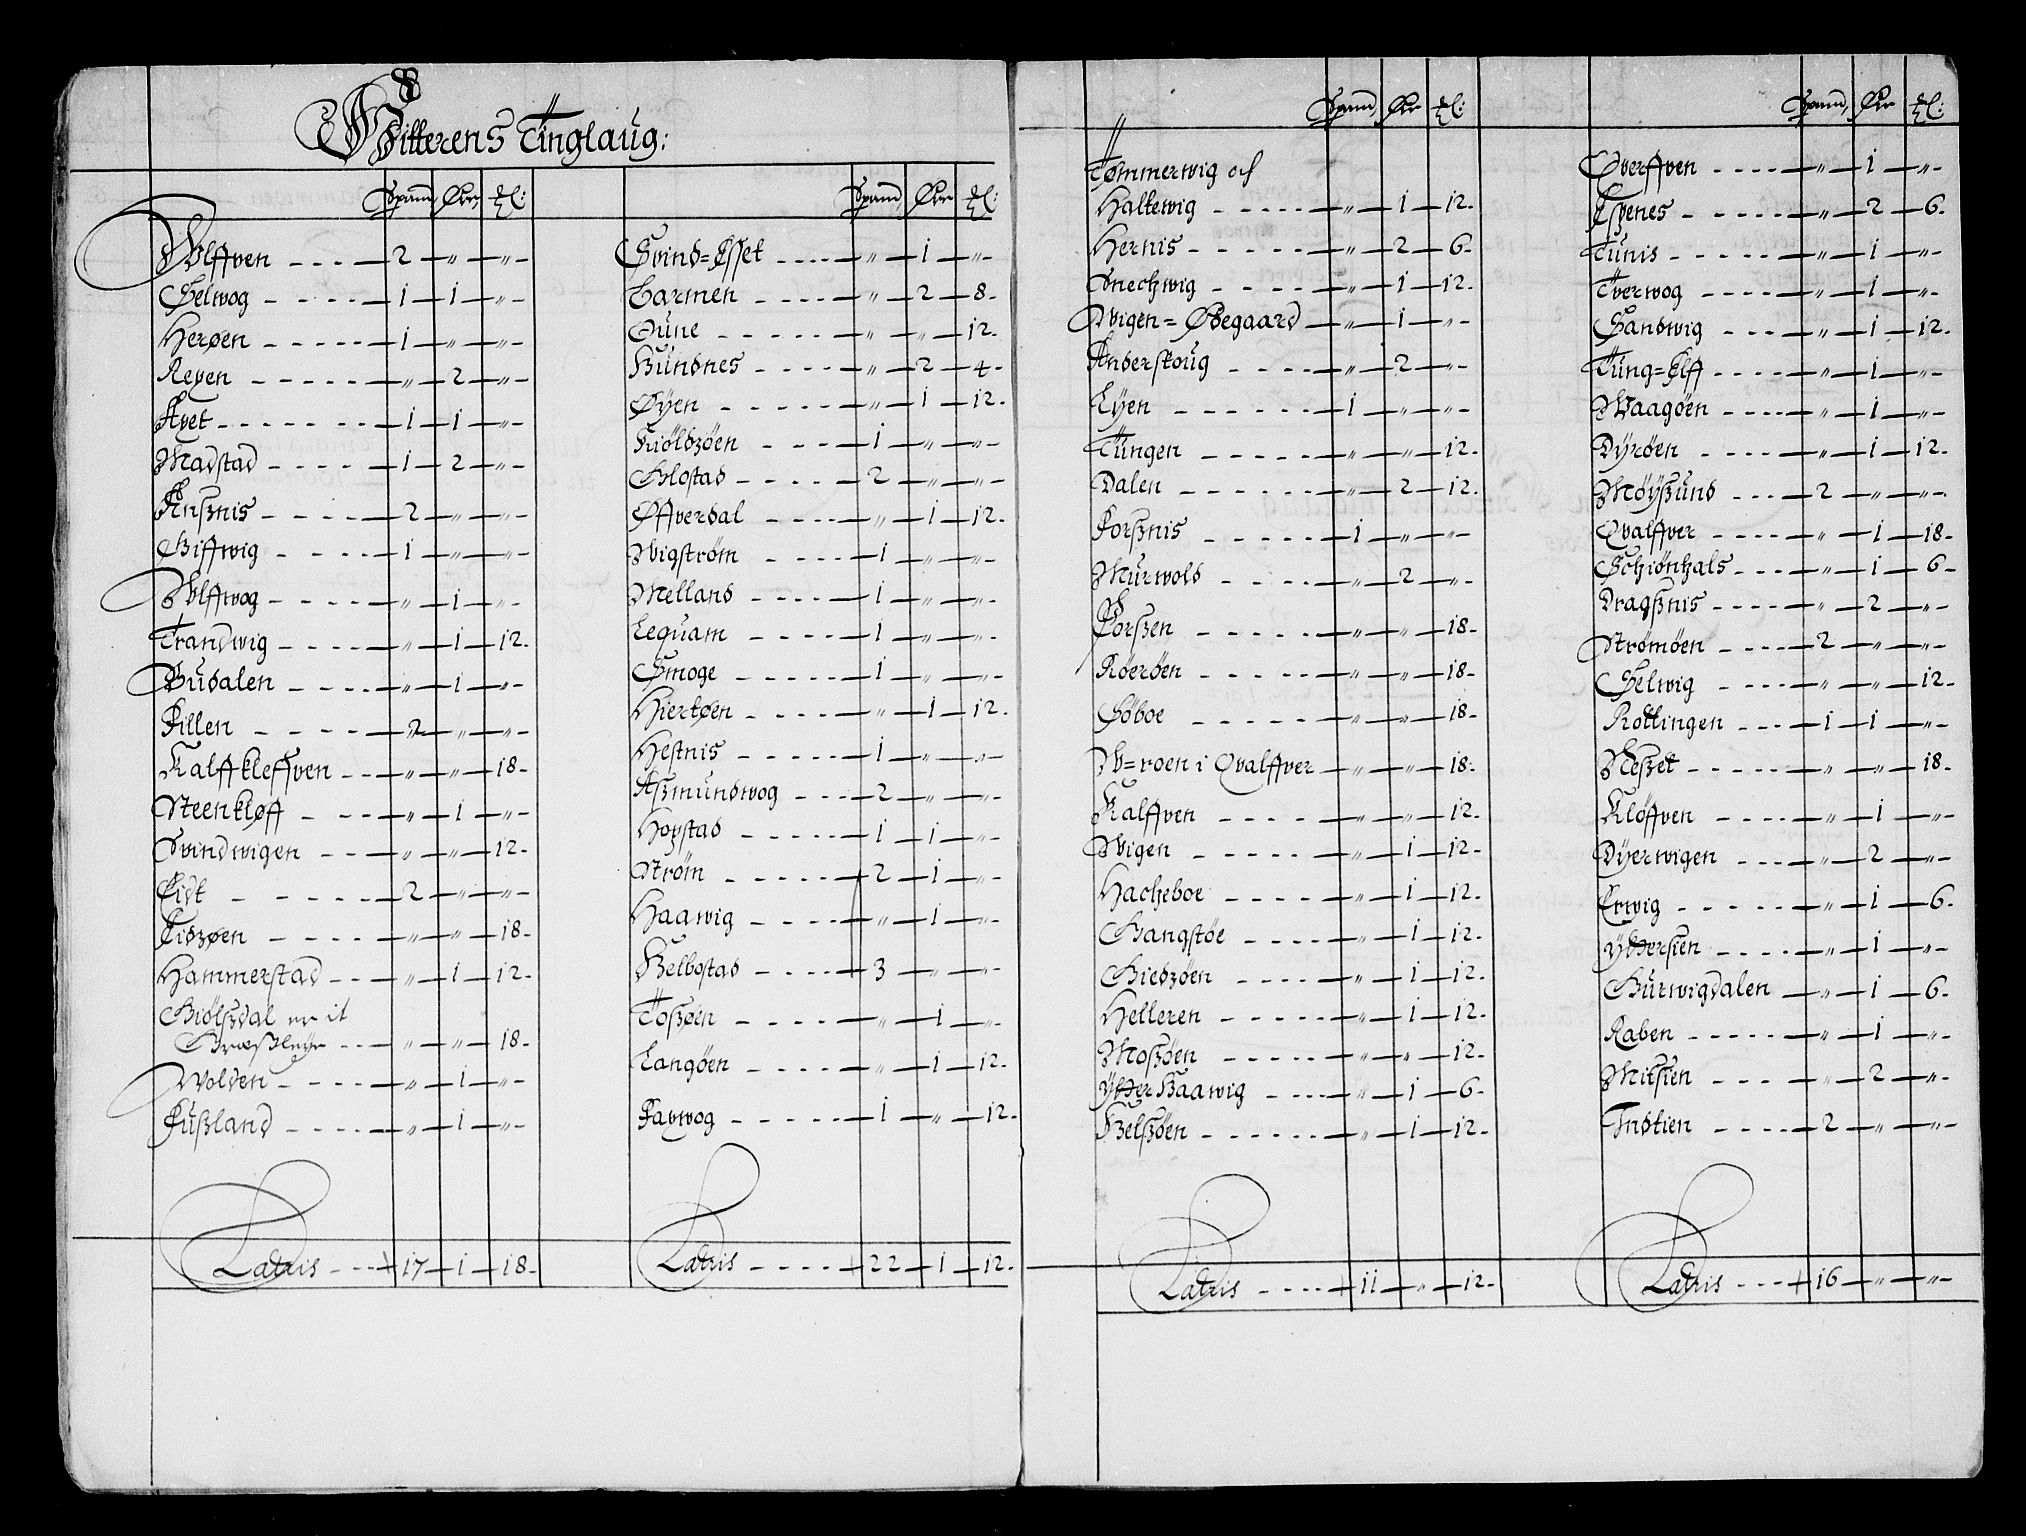 Hitterens Tinglaug:
Spand, Ører, ℔l:
Ulffven - - - - 2 — „ — „ -
Selwog - - - - 1 — 1 — „ -
Herøen - - - - 1 — „ — „ -
Reven - - - - „ — 2 — „ -
Avet - - - - 1 — 1 — „ -
Madstad - - - - 1 — 2 — „ -
Anßnis - - - - 2 — „ — „ -
Giffwig - - - - 1 — „ — „ -
Ulffwog - - - - „ — 1 — „ -
Strandwig - - - - „ — 1 — 12 -
Budalen - - - - „ — 1 — „ -
Fillen - - - - 2 — „ — „ -
Kalffkleffven - - „ — „ — 18 -
Steenkløff - - - - „ — 1 — „ -
Svindwigen - - - - „ — „ — 12 -
Eidt - - - - 2 — „ — „ -
Eidzøen - - - - „ — „ — 18 -
Hammerstad - - - „ — 1 — 12 -
Giölßdal er it
- - „ — „ — 18 -
Wolden - - - - „ — 1 — „ -
Fußland - - - - „ — 1 — „ -
Latris - - - 17 — 1 — 18 -
Spand, Ører ℔l:
Svind=Esset - - - - „ — 1 — „ -
Barmen - - - - „ — 2 — 8 -
Oune - - - - „ — „ — 12 -
Hundnes - - - - „ — 2 — 4 -
Øÿen - - - - „ — 1 — 12 -
Kiöldzöen - - - - 1 — „ — „ -
Glostad - - - - 2 — „ — „ -
Øffverdal - - - - „ — 1 — 12 -
Wigström - - - - 1 — „ — „ -
Melland - - - - 1 — „ — „ -
Lequam - - - - 1 — „ — „ -
Smoge - - - - 1 — „ — „ -
Hiertøen - - - - „ — 1 — 12 -
Hestnis - - - - 1 — „ — „ -
Aßmundwog - - - 2 — „ — „ -
Hopstad - - - - 1 — 1 — „ -
Ström - - - - 2 — 1 — „ -
Haawig - - - - „ — 1 — „ -
Helbostad - - - - 3 — „ — „ -
Toßøen - - - - „ — 1 — „ -
Langöen - - - - „ — 1 — 12 -
Favwog - - - - 1 — „ — 12 -
Latris - - - - 22 — 1 — 12 -
Spand, Ører ℔l:
Tømmerwig och
Haltewig - - - - „ — 1 — 12 -
Hernis - - - - „ — 2 — 6 -
Snechwig - - - - „ — 1 — 12 -
Wigen = Ødegaard — „ — 1 — „ -
Anderskoug - - - - „ — 2 — „ -
Lÿen - - - - 1 — „ — „ -
Tungen - - - - „ — „ — 12 -
Dalen - - - - „ — 2 — 12 -
Forßnis - - - - 1 — „ — „ -
Murwold - - - - „ — 2 — „ -
Forßen - - - - „ — „ — 18 -
Röeröen - - - - „ — „ — 18 -
Söboe - - - - „ — „ — 18 -
W=roen i Qvalffver — „ — „ — 18 -
Kalffven - - - - „ — „ — 12 -
Wigen - - - - „ — 1 — 12 -
Hacheboe - - - - „ — 1 — 12 -
Bangstöe - - - - „ — 1 — 12 -
Giedzöen - - - - „ — 1 — 12 -
Helleren - - - - „ — 1 — 12 -
Moßöen - - - - „ — „ — 12 -
Ytter Haawig - - - - „ — 1 — 6 -
Helßöen - - - - „ — 1 — 12 -
Latris - - - - 11 — „ — 12 -
Spand, Ører ℔l:
Overffven - - - - „ — 1 — „ -
Eßpenes - - - - „ — 2 — 6 -
Tunis - - - - „ — 1 — „ -
Tverwog - - - - „ — 1 — „ -
Sandwig - - - - „ — 1 — 12 -
Tung=Elff - - - - „ — 1 — „ -
Waagöen - - - - „ — 1 — „ -
Dÿröen - - - - „ — 1 — 12 -
Möÿßund - - - 2 — „ — „ -
Qvalffver - - - - „ — 1 — 18 -
Schiönhals - - - - „ — 1 — 6 -
Dragßnis - - - - „ — 2 — „ -
Strömöen - - - - 2 — „ — „ -
Selwig - - - - „ — „ — 12 -
Rottingen - - - - 1 — 1 — „ -
Neßet - - - - „ — „ — 18 -
Klöffven - - - - „ — 1 — „ -
Dÿerwigen - - - - „ — 2 — „ -
Erwig - - - - „ — 1 — 6 -
Ÿttersien - - - - „ — 1 — „ -
Burwigdalen — „ — 1 — 6 -
Raben - - - - „ — 1 — „ -
Mitsien - - - - „ — 2 — „ -
Indtien - - - - 2 — „ — „ -
Latris - - - 16 — „ — „ -